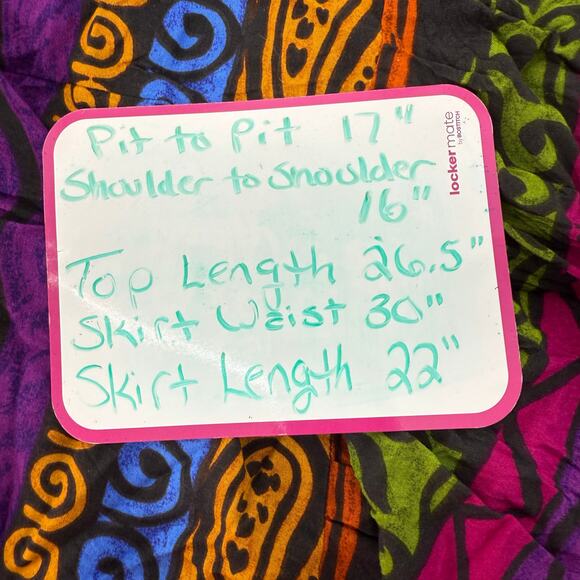 Pit to Pit 17"
Shoulder to Shoulder
16"
Top Length 26.5"
Skirt Waist 30"
Skirt Length 22"
lockermate
by BOSTITCH